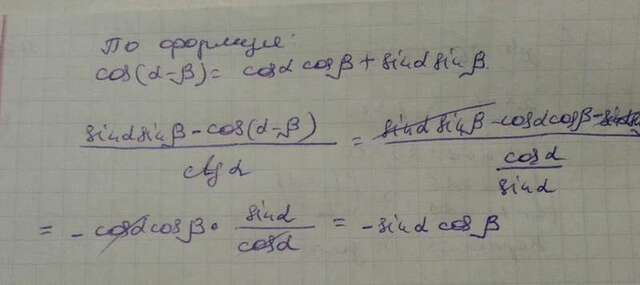 По формуле:
cos(α-β) = cosα cosβ + sinα sinβ.
(sinα sinβ - cos(α-β)) / ctg α = (sinα sinβ - cosα cosβ - sinα) / (cosα / sinα)
= - cosα cosβ · sinα / cosα = - sinα cosβ